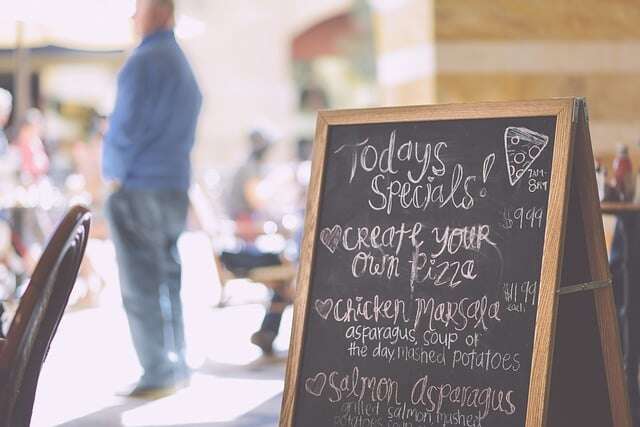 Todays
Specials!
7AM-
8PM
$9.99
CREATE YOUR
OWN PIZZA
$11.99
each
CHICKEN MARSALA
asparagus, soup of
the day, mashed potatoes
Salmon Asparagus
grilled salmon mashed
potatoes soup